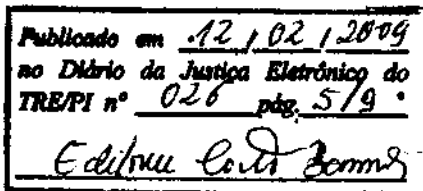 Publicado em 12 / 02 / 2009
no Diário da Justiça Eletrônico do
TRE/PI nº 026 pág. 5/9.